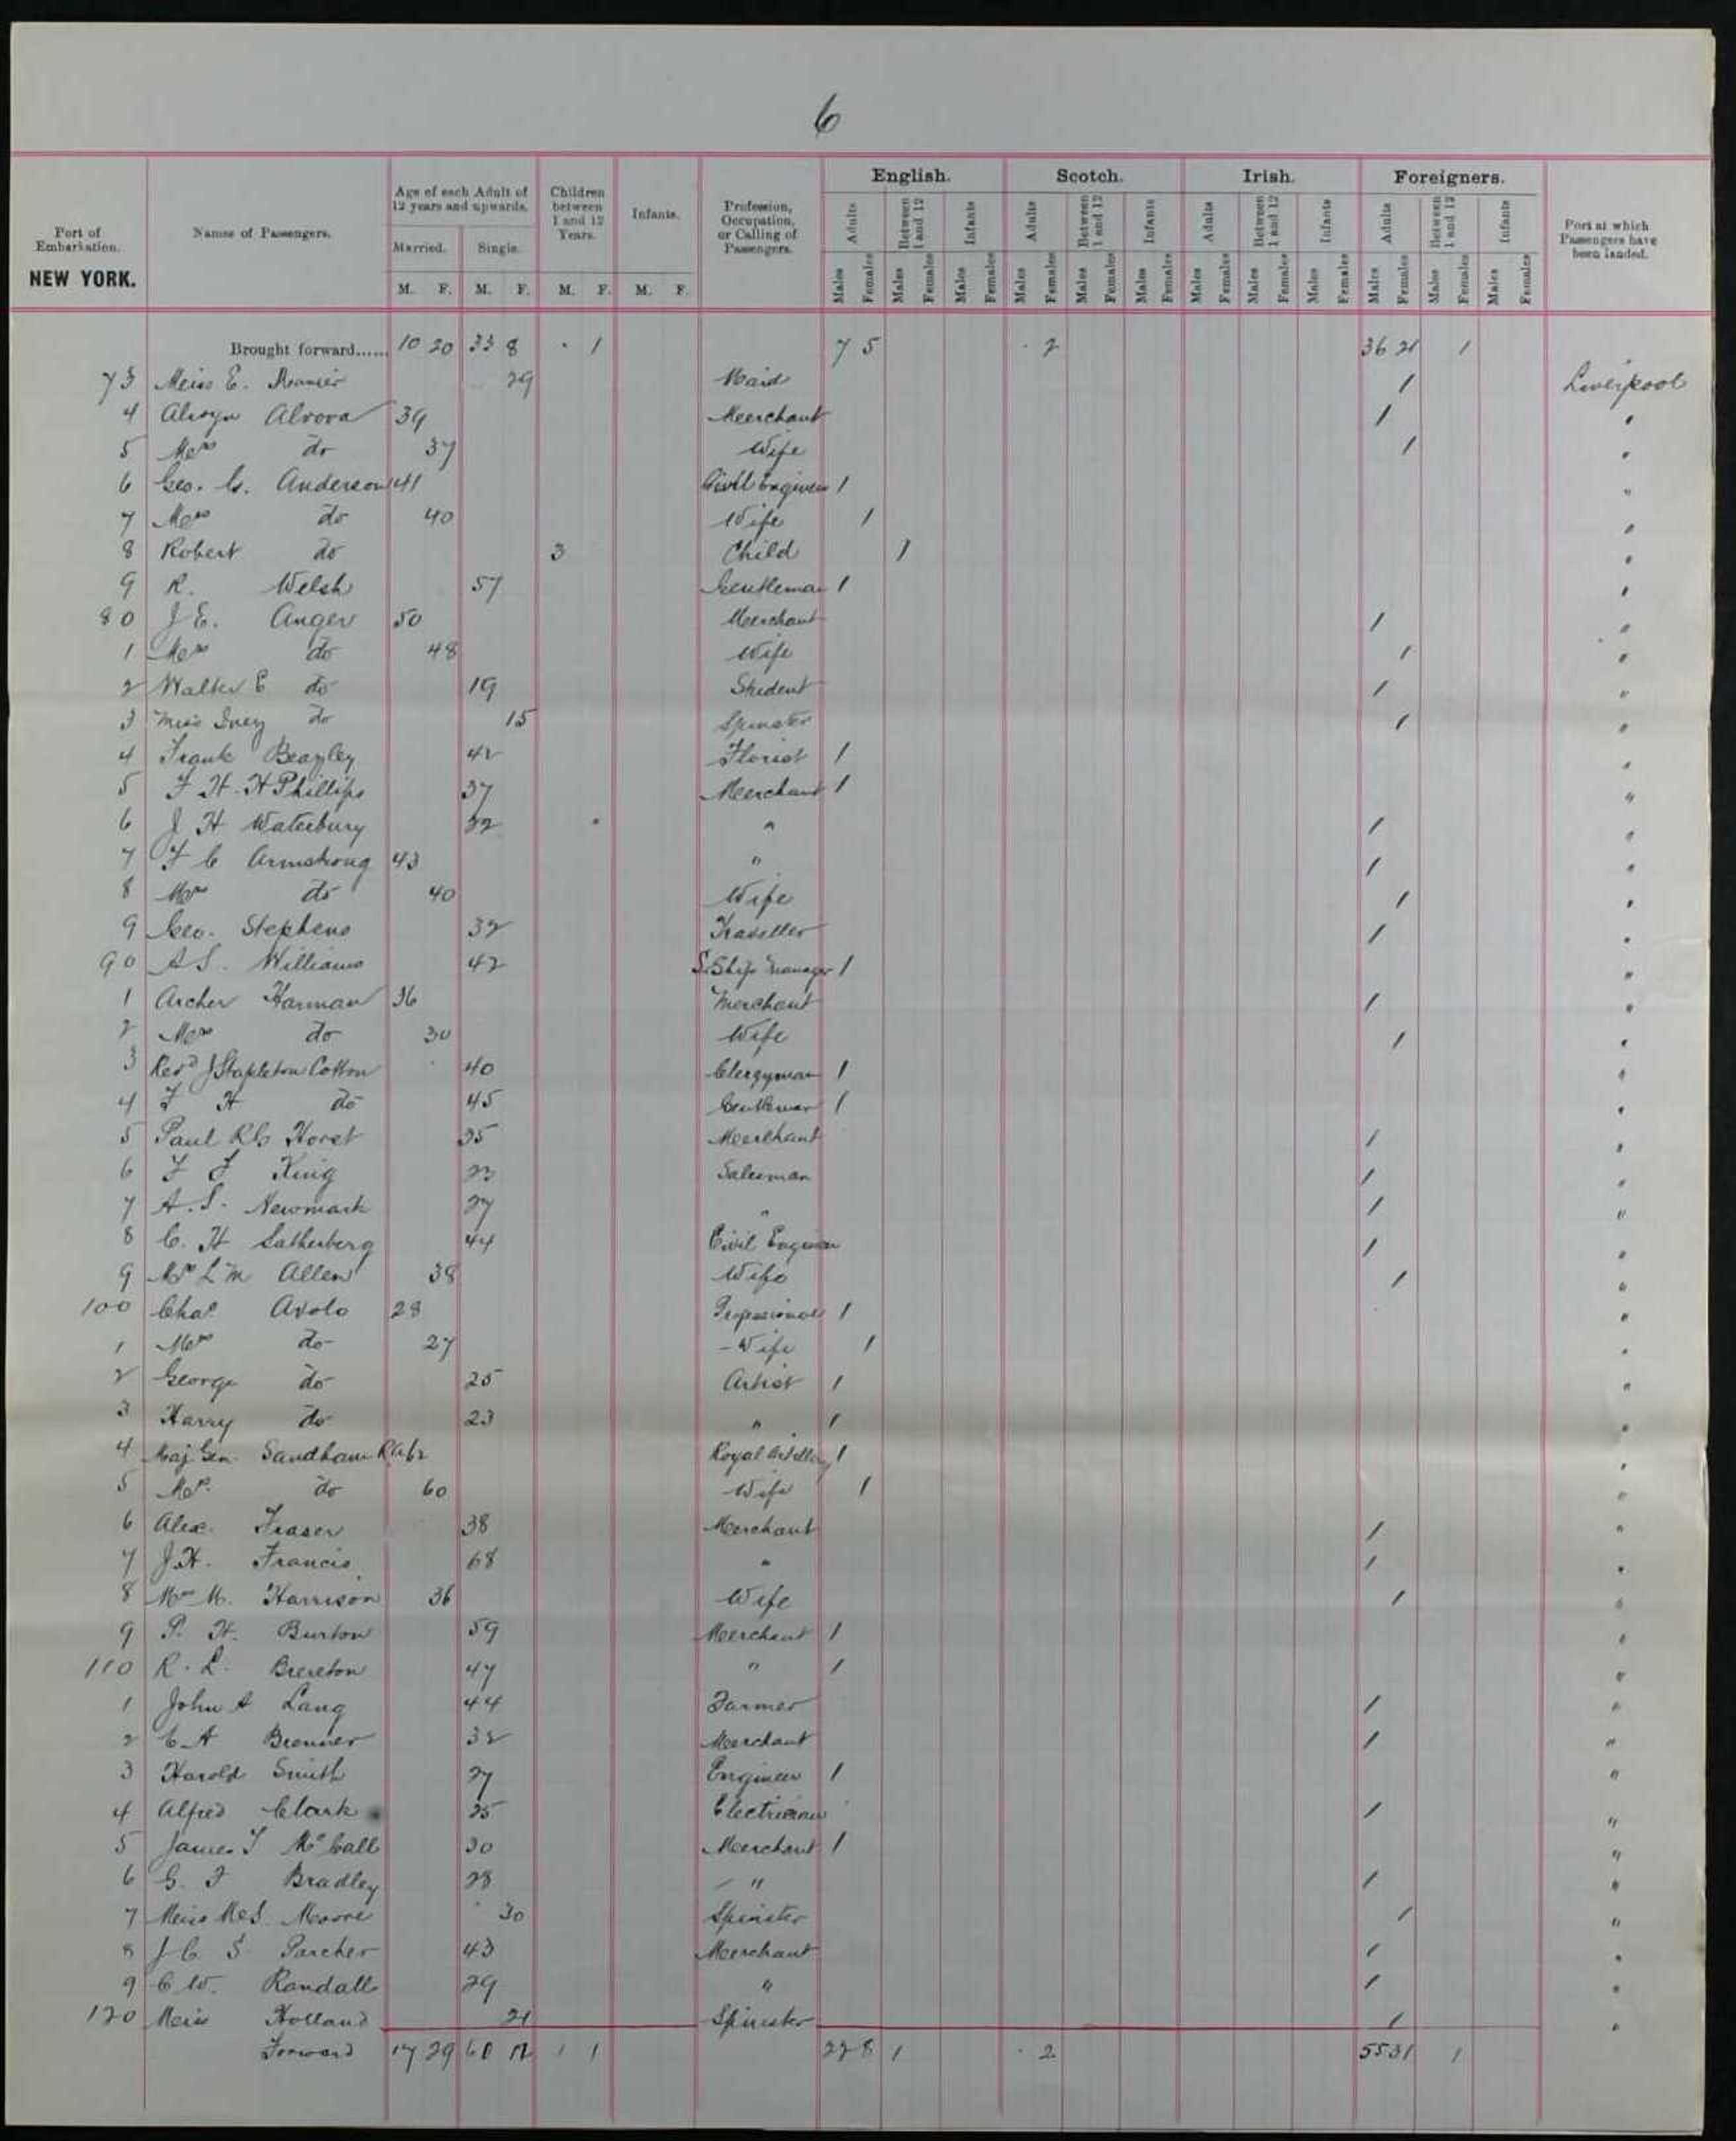 6
Port of Embarkation. NEW YORK.
Names of Passengers.
Age of each Adult of 12 years and upwards.
Married. Single.
M. F. M. F.
Children between 1 and 12 Years.
M. F.
Infants.
M. F.
Profession, Occupation, or Calling of Passengers.
English. Scotch. Irish. Foreigners.
Adults Between 1 and 12 Infants Adults Between 1 and 12 Infants Adults Between 1 and 12 Infants Adults Between 1 and 12 Infants
Males Females Males Females Males Females Males Females Males Females Males Females Males Females Males Females Males Females Males Females Males Females Males Females
Port at which Passengers have been landed.
Brought forward...... 10 20 33 8 · 1 7 5 · 2 36 21 1
73 Miss E. 29 Maid 1 Liverpool
4 Alvora 39 Merchant 1 "
5 Mrs do 37 Wife 1 "
6 Geo. G. Anderson 41 Civil Engineer 1 "
7 Mrs do 40 Wife 1 "
8 Robert do 3 Child 1 "
9 R. Welsh 57 Gentleman 1 "
80 J E. Anger 50 Merchant 1 "
1 Mrs do 48 Wife 1 "
2 Walter E do 19 Student 1 "
3 Miss Inez do 15 Spinster 1 "
4 Frank Beazley 42 Florist 1 "
5 F H. H Phillips 37 Merchant 1 "
6 J H Waterbury 32 " 1 "
7 F C Armstrong 43 " 1 "
8 Mrs do 40 Wife 1 "
9 Geo. Stephens 32 Traveller 1 "
90 A S. Williams 42 S. Ship Manager 1 "
1 Archer Harman 36 Merchant 1 "
2 Mrs do 30 Wife 1 "
3 Revd J Stapleton Cotton 40 Clergyman 1 "
4 F H do 45 Gentleman 1 "
5 Paul R G Horst 35 Merchant 1 "
6 F F King 23 Salesman 1 "
7 A. S. Newmark 27 " 1 "
8 C. H Satherberg 44 Civil Engineer 1 "
9 Mrs L M Allen 38 Wife 1 "
100 Chas Avolo 28 Professional 1 "
1 Mrs do 27 Wife 1 "
2 George do 25 Artist 1 "
3 Harry do 23 " 1 "
4 Maj. Gen. Sandham RA 62 Royal Artillery 1 "
5 Mrs. do 60 Wife 1 "
6 Alex. Fraser 38 Merchant 1 "
7 J. H. Francis 68 " 1 "
8 Mrs M. Harrison 36 Wife 1 "
9 P. H. Burton 59 Merchant 1 "
110 R. L. Brereton 47 " 1 "
1 John A Lang 44 Farmer 1 "
2 C A Brenner 32 Merchant 1 "
3 Harold Smith 27 Engineer 1 "
4 Alfred Clark 25 Electrician 1 "
5 James T McCall 30 Merchant 1 "
6 G. F Bradley 28 " 1 "
7 Miss M e S. Moore 30 Spinster 1 "
8 J C S Parcher 43 Merchant 1 "
9 C W. Randall 29 " 1 "
120 Miss Holland 21 Spinster 1 "
Forward 17 29 60 12 1 1 22 8 1 · 2 55 31 1